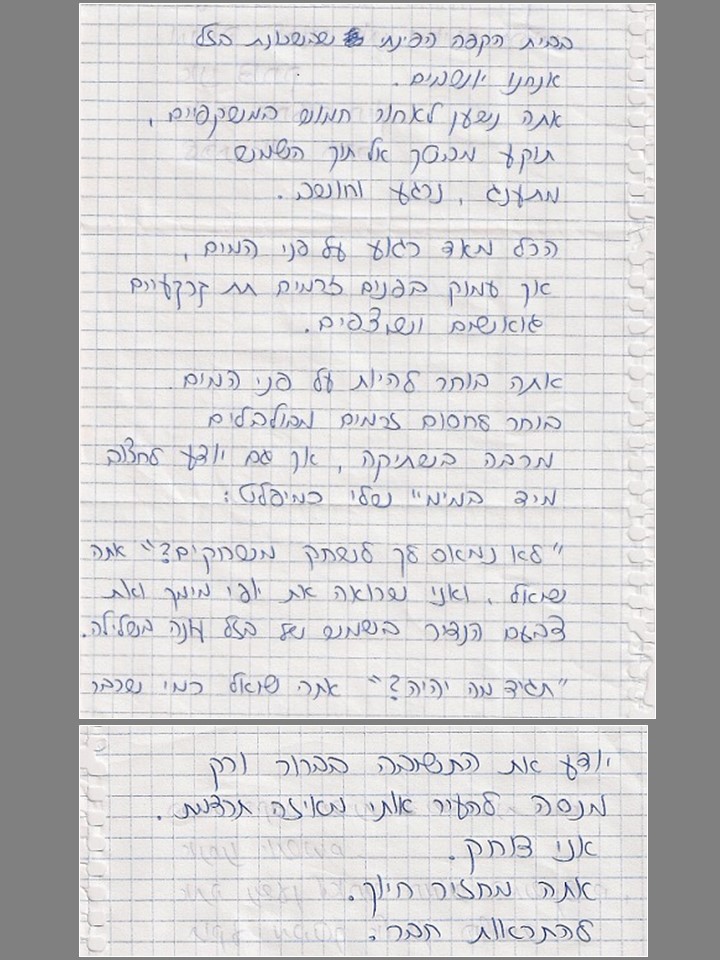 בבית הקפה הפינתי שבשכונת בזל
אנחנו יושבים.
אתה נשען לאחור חמוש במשקפיים,
תוקע מבטך אל תוך השמש
מתענג, נרגע וחושב.
הכל מאד רגוע על פני המים,
אך עמוק בפנים זרמים תת קרקעיים
גואשים ושוצפים.
אתה בוחר להיות על פני המים.
בוחר לחסום זרמים מבולבלים
מרבה בשתיקה, אך גם יודע לחצוב
מיד במימיי שלי כמיפלט:
"לא נמאס לך לשחק משחקים?" אתה
שואל. ואני שרואה את יופי מימך ואת
צבעם הנדיר בשמש של בזל עונה בשלילה.
"תגיד מה יהיה?" אתה שואל כמי שכבר
יודע את התשובה בבירור ורק
מנסה להעיר אותי מאיזה תרדמת.
אני צוחק.
אתה מחזיר חיוך.
להתראות חבר.